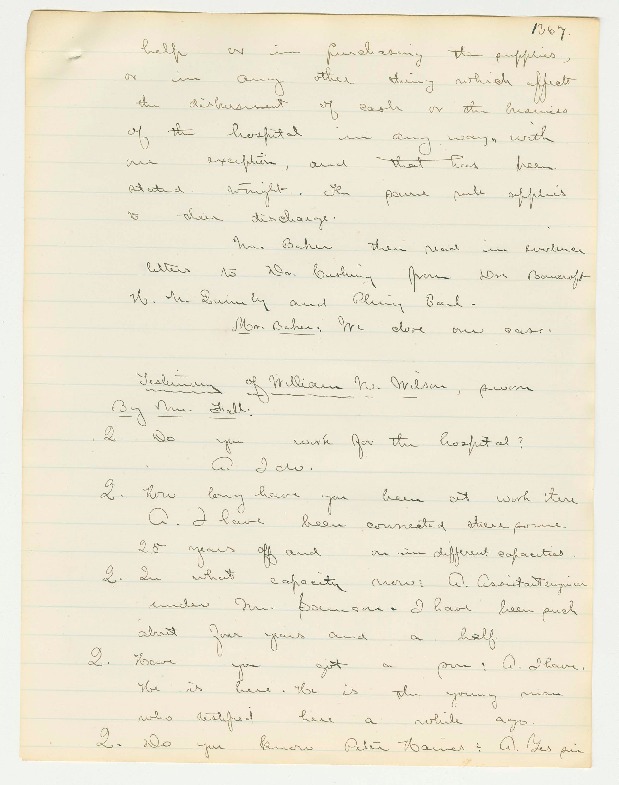 1367.
help or in purchasing the supplies,
or in any other thing which affects
the disbursement of cash or the business
of the hospital in any way, with
one exception, and that has been
stated straight. The same rule applies
to their discharge.
Mr. Baker then read in evidence
letters to Dr. Cushing from Drs Bancroft
and Pliny Earl.
Mr. Baker. We close our case.
Testimony of William W. Wilson, sworn
By Mr. Hall:
Q Do you work for the hospital?
A. I do.
Q. How long have you been at work there
A. I have been connected there some
25 years off and on in different capacities.
Q. In what capacity now: A. Assistant engineer
under Mr. I have been such
about four years and a half
Q. Have you got a son: A. I have.
He is here. He is the young man
who testified here a while ago.
Q. Do you know Peter Hames: A. Yes sir